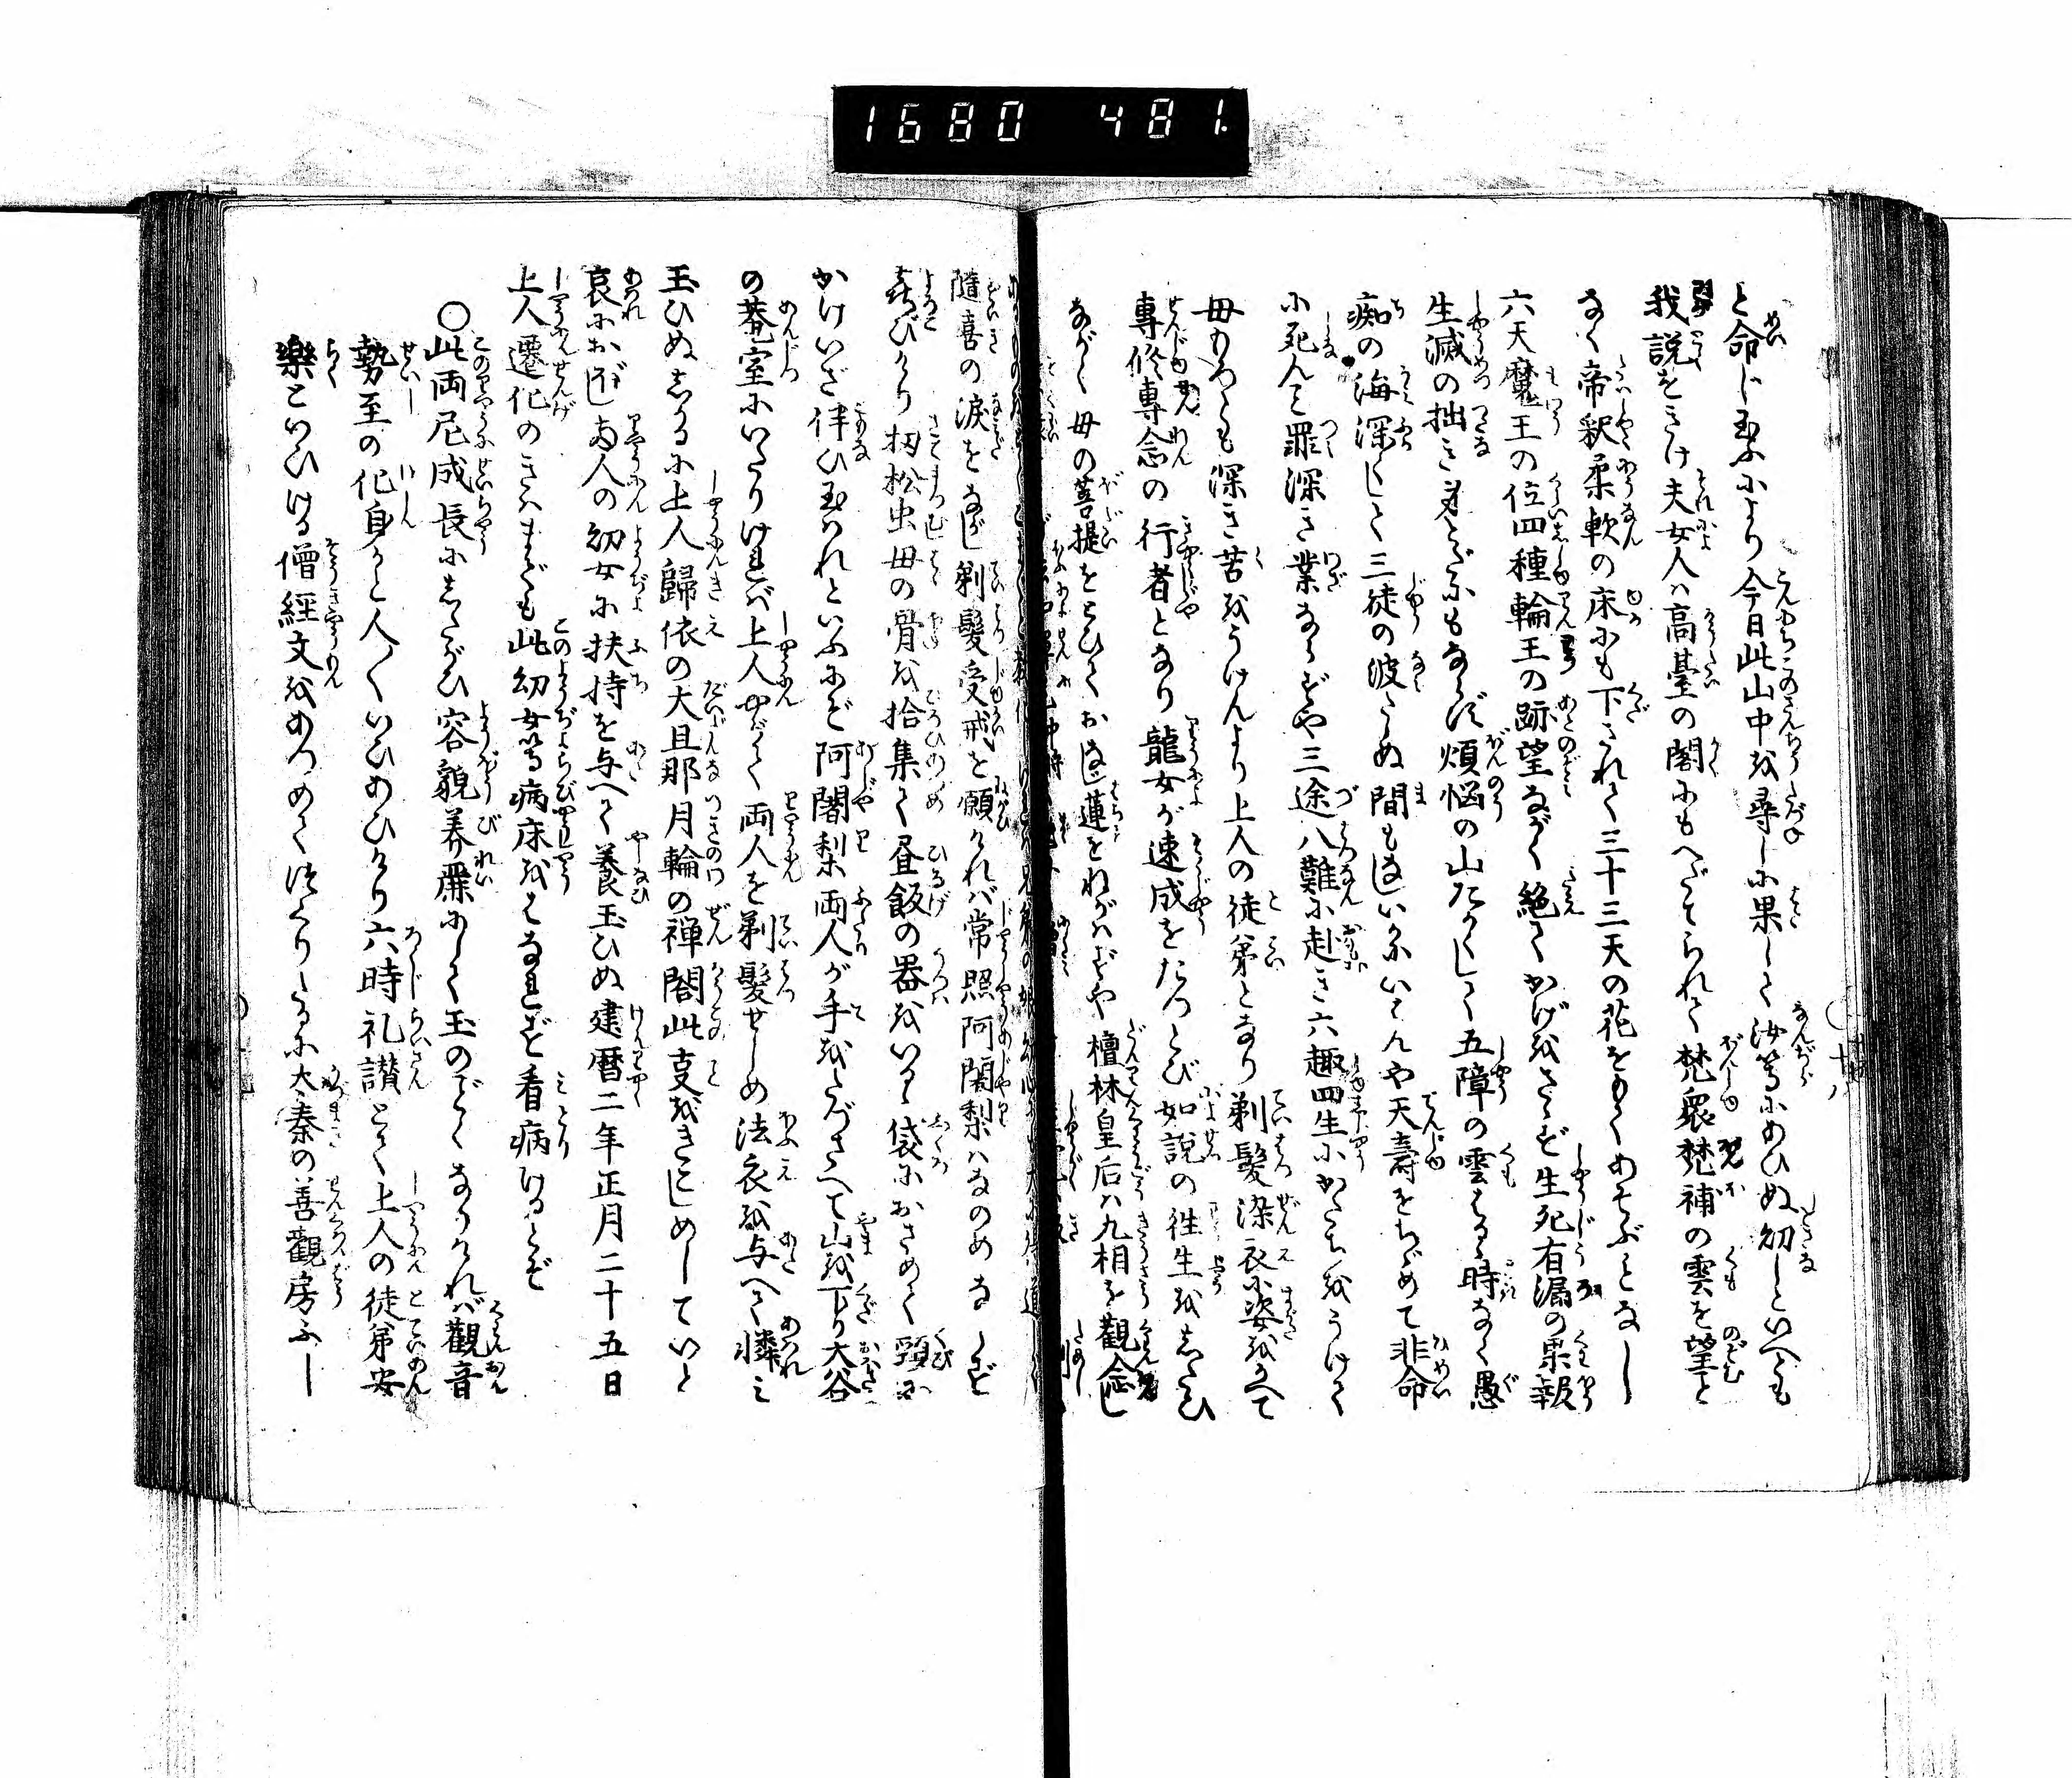 1680 481.
と命じ玉ふにより今日此山中を尋しに果して汝等にあひぬ幼しといへども
我説をきけ夫女人は高臺の閣にもへだてられて梵衆梵補の雲を望こと
なく帝釈柔軟の床にも下されて三十三天の花をもてあそぶことなし
六天魔王の位四種輪王の跡望ながく絶てかげをさゝず生死有漏の果報
生滅の拙き身とだにもならず煩悩の山たかくして五障の雲はるゝ時なく愚
痴の海深くして三従の波たゝぬ間もなしいかにいはんや天壽をちゞめて非命
に死んこと罪深き業ならずや三途八難に赴き六趣四生にかたちをうけて
母もろとも深き苦をうけんより上人の徒弟となり剃髪染衣に姿をかへて
專修專念の行者となり龍女が速成をたつとび如説の徃生をしたひ
ながく母の菩提をとひておなじ蓮をねがはずや檀林皇后は九相を觀念し
隨喜の涙をながし剃髪受戒を願ければ常照阿闍梨はなのめならず
喜びけり扨松虫母の骨を拾集て昼飯の器をいるゝ袋におさめて頸に
かけいざ伴ひ玉はれといふにぞ阿闍梨両人が手をたづさへて山を下り大谷
の菴室にいたりければ上人やがて両人を剃髪せしめ法衣を与へて憐み
玉ひぬしかるに上人歸依の大旦那月輪の禅閤此事をきこしめしていと
哀におぼし両人の幼女に扶持を与へて養玉ひぬ建暦二年正月二十五日
上人遷化のきはまでも此幼女等病床をはなれず看病けるとぞ
○此両尼成長にしたがひ容貌美麗にして玉のごとくなりければ觀音
勢至の化身かと人〳〵いひあひけり六時礼讃とて上人の徒弟安
樂といひける僧經文をあつめてつくりしるに太秦の善觀房ふし